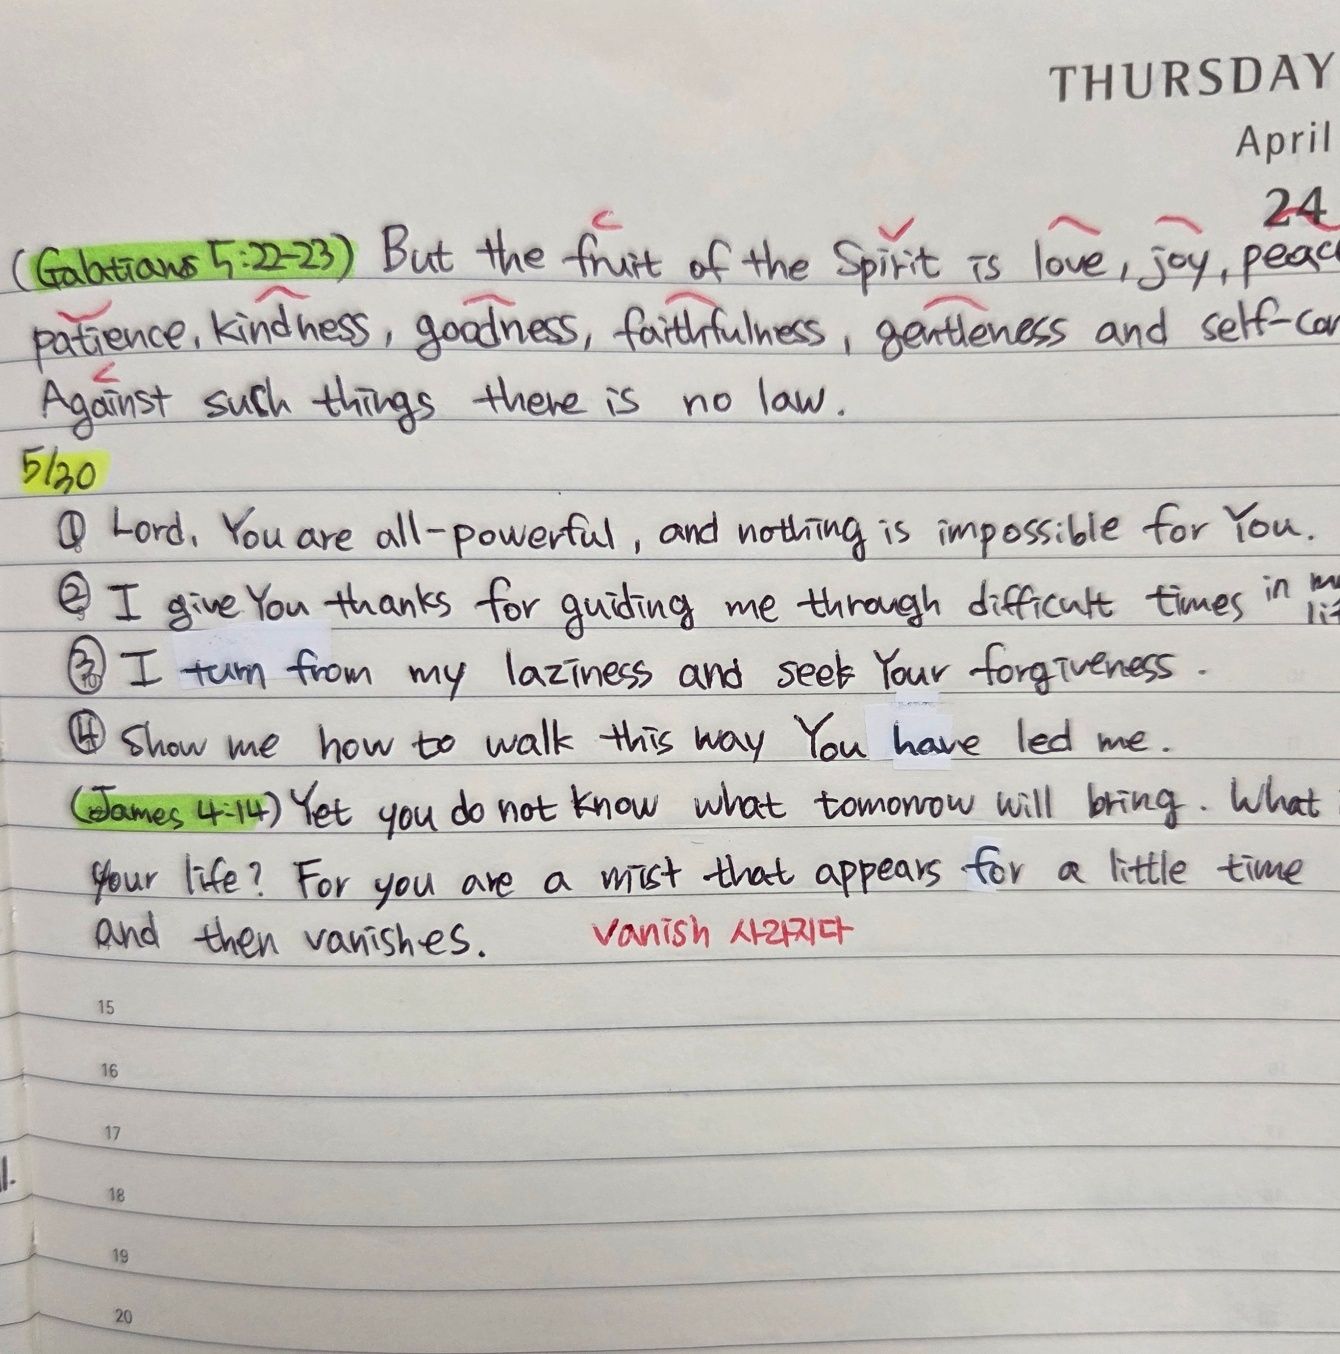 THURSDAY
April
24
(Galatians 5:22-23) But the fruit of the Spirit is love, joy, peac
patience, kindness, goodness, faithfulness, gentleness and self-con
Against such things there is no law.
5/30
① Lord, You are all-powerful, and nothing is impossible for You.
② I give You thanks for guiding me through difficult times in my
lif
③ I turn from my laziness and seek Your forgiveness.
④ Show me how to walk this way You have led me.
(James 4:14) Yet you do not know what tomorrow will bring. What
your life? For you are a mist that appears for a little time
and then vanishes. vanish 사라지다
15
16
17
18
19
20